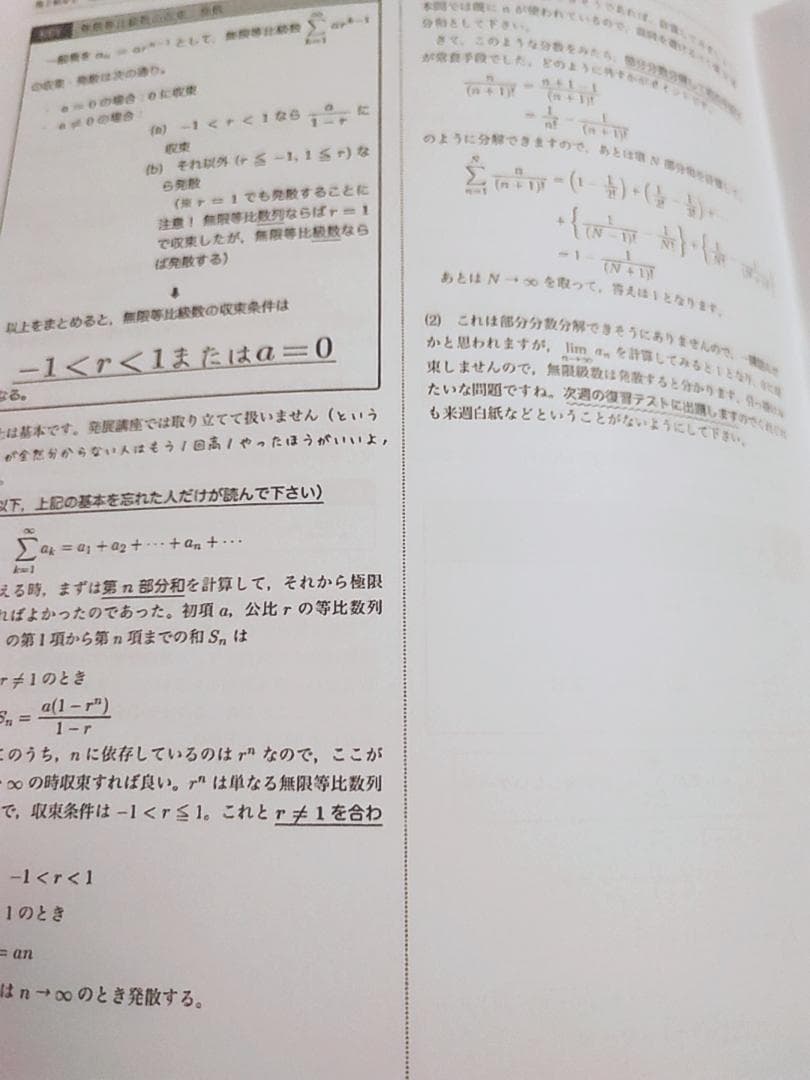 無限等比級数の収束・発散
一般項を a_n = ar^{n-1} として，無限等比級数 \sum_{k=1}^{∞} ar^{k-1}
の収束・発散は次の通り。
・ a = 0 の場合：0 に収束
・ a ≠ 0 の場合：
(a) −1 < r < 1 なら \frac{a}{1-r} に
収束
(b) それ以外 (r ≦ −1, 1 ≦ r) な
ら発散
(※ r = 1 でも発散することに
注意！無限等比数列ならば r = 1
で収束したが，無限等比級数なら
ば発散する)
↓
以上をまとめると，無限等比級数の収束条件は
−1 < r < 1 または a = 0
なる。
は基本です。発展講座では取り立てて扱いません（という
が全然分からない人はもう1回高1やったほうがいいよ，
。
以下，上記の基本を忘れた人だけが読んで下さい）
\sum_{k=1}^{∞} a_k = a_1 + a_2 + ··· + a_n + ···
える時，まずは第 n 部分和を計算して，それから極限
ればよかったのであった。初項 a，公比 r の等比数列
の第1項から第 n 項までの和 S_n は
r ≠ 1 のとき
S_n = \frac{a(1-r^n)}{1-r}
このうち，n に依存しているのは r^n なので，ここが
∞ の時収束すれば良い。r^n は単なる無限等比数列
で，収束条件は −1 < r ≦ 1。これと r ≠ 1 を合わ
−1 < r < 1
1 のとき
= an
は n → ∞ のとき発散する。
分和として下さい。
さて，このような分数をみたら，部分分数分解
が常套手段でした。
\frac{n}{(n+1)!} = \frac{n+1-1}{(n+1)!}
= \frac{1}{n!} - \frac{1}{(n+1)!}
のように分解できますので，あとは第 N 部分和を計算して，
\sum_{n=1}^{N} \frac{n}{(n+1)!} = (1 - \frac{1}{2!}) + (\frac{1}{2!} - \frac{1}{3!}) + ···
+ \{\frac{1}{(N-1)!} - \frac{1}{N!}\} + \{\frac{1}{N!} -
= 1 - \frac{1}{(N+1)!}
あとは N → ∞ を取って，答えは 1 となります。
(2) これは部分分数分解できそうにありませんので，一瞬
かと思われますが，\lim_{n→∞} a_n を計算してみると 1 となり，0 に収
束しませんので，無限級数は発散すると分かります。
たいな問題ですね。次週の復習テストに出題しますので
も来週白紙などということがないようにして下さい。